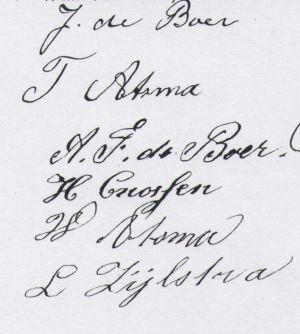 J. de Boer
T Atsma
A. F. de Boer.
H Cnossen
W Atsma
L Zijlstra